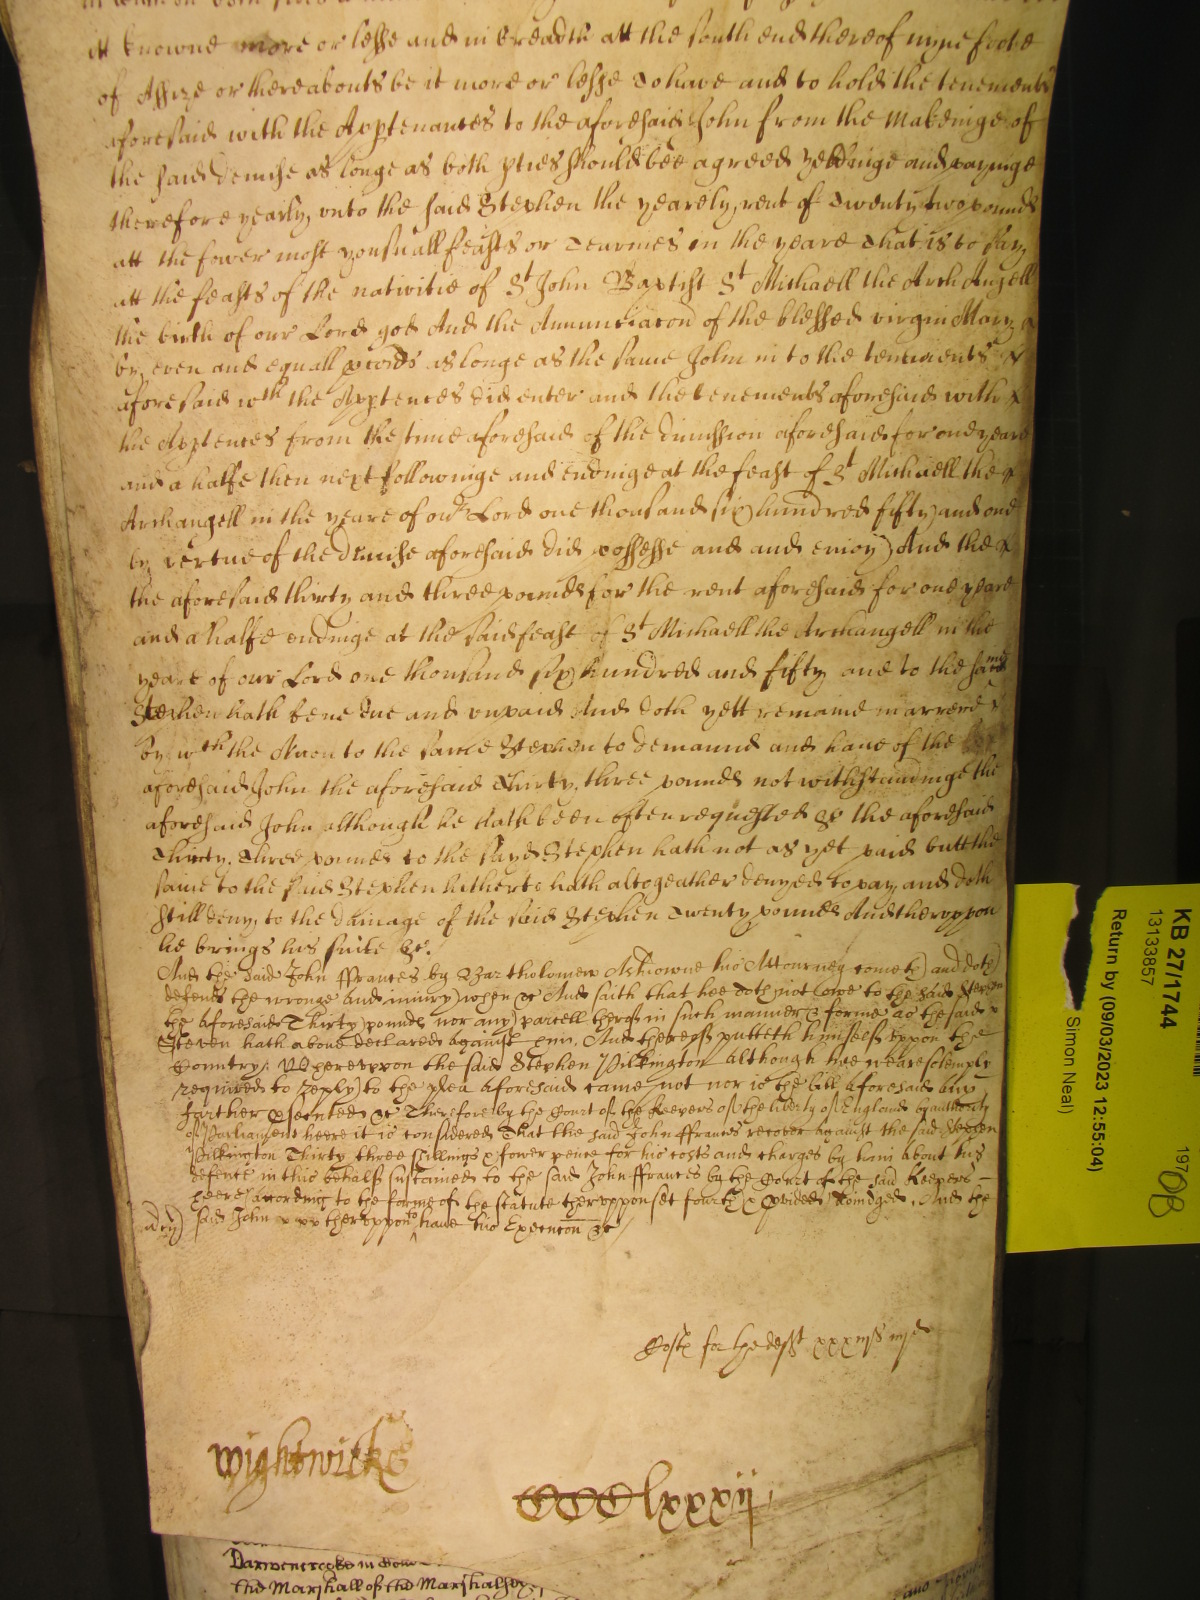 it knowne more or lesse and in breadth att the south end thereof nyne foote
of Assize or thereabouts be it more or lesse To have and to hold the tenements
aforesaid with the Apptenances to the aforesaid John from the Makeinge of
the said demise as longe as both pties should bee agreed yeldinge and payinge
therefore yearly unto the said Stephen the yearely rent of Twenty two pounds
att the fower most yousuall feasts or Tearmes in the yeare That is to say
att the feasts of the nativitie of St John Baptist St Michaell the Arch Angell
the birth of our Lord god And the Annunciacon of the blessed virgin Mary
by even and equall porcons as longe as the same John in to the tenements
aforesaid wth the Apptences did enter and the tenements aforesaid with
the Apptences from the time aforesaid of the dimission aforesaid for one yeare
and a halfe then next followinge and endinge at the feast of St Michaell the
Archangell in the yeare of our Lord one thousand six hundred fifty and one
by vertue of the demise aforesaid did possesse and and enioy And the
the aforesaid thirty and three pounds for the rent aforesaid for one yeare
and a halfe endinge at the said feast of St Michaell the Archangell in the
yeare of our Lord one thousand six hundred and fifty one to the same
Stephen hath bene due and unpaid And doth yett remaine in arrere
by wch the Accon to the same Stephen to demaund and have of the
aforesaid John the aforesaid Thirty three pounds not withstandinge the
aforesaid John although he hath been often requested &c the aforesaid
Thirty Three pounds to the sayd Stephen hath not as yet paid butt the
same to the said Stephen hitherto hath altogeather denyed to pay and doth
still deny to the damage of the said Stephen Twenty pounds And theruppon
he brings his suite &c.
And the said John ffrances by Bartholomew Ashowne his Attourney cometh and doth
defend the wronge and iniury when &c And saith that hee doth not owe to the said Stephen
the aforesaid Thirty pounds nor any parcell therof in such manner & forme as the said
Steven hath above declared against him. And thereof putteth himselfe uppon the
Country. Whereuppon the said Stephen Pilkington although hee weare solemply
required to reply to the plea aforesaid came not nor is the bill aforesaid any
further psecuted &c Therefore by the Court of the Keepers of the liberty of England by authority
of Parliament heere it is considered That the said John ffrances recover against the said Stephen
Pilkington Thirty three shillings & fower pence for his costs and charges by him about his
defence in this behalf sustained to the said John ffrances by the Court of the said Keepers
heere according to the forme of the statute theruppon set fourth & pvided adiudged. And the
said John &c theruppon to have his Execucon &c
Costs for the deft xxxiijs iiijd
Wightwicke
CCClxxxij
Darwent &
the Marshall of the Marshalsey
KB 27/1744
13133857
Return by (09/03/2023 12:55:04)
Simon Neal)
1970
08